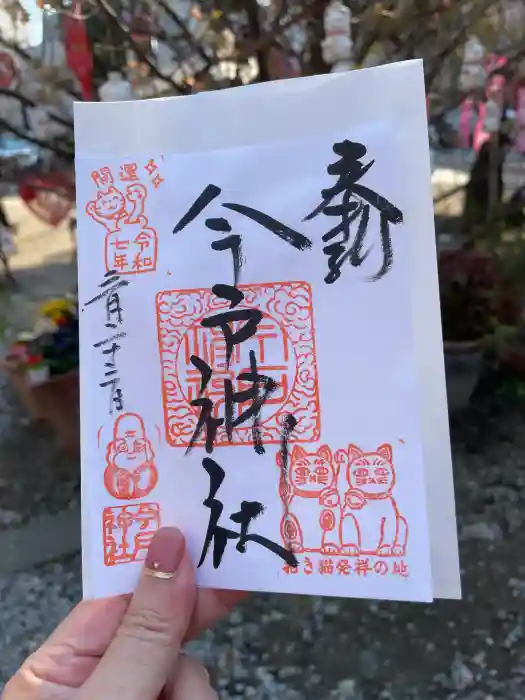 奉拝
今戸神社
招き猫発祥の地
開運
令和
七年
月二十二日
今戸
神社